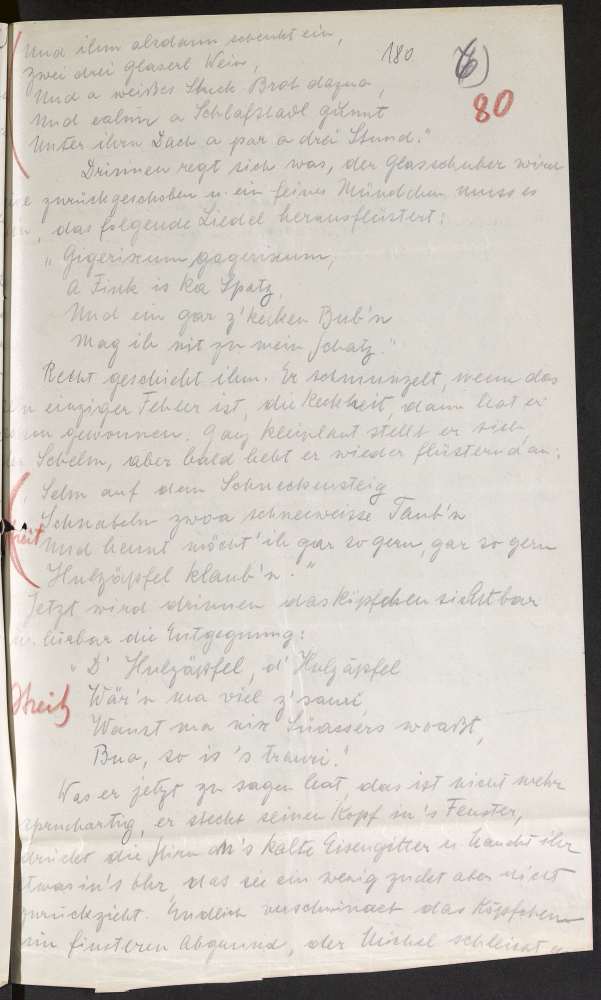 Und ihm alsdann schenkt ein,
zwei drei Glaserl Wein,
180
80
Und a weißes Stuck Brot dazua,
Und ealm a Schlafstadl gunnt
Unter ihrn Dach a par a drei Stund."
Drinnen regt sich was, der Glasschuber wird
zurückgeschoben u. ein feines Mündchen muss es
, das folgende Liedel herausflüstert:
"Gigerixum gagerixum,
A Fink is ka Spatz,
Und ein gar z'kecken Bub'n
Mag ih nit zu mein Schatz."
Recht geschieht ihm. Er schmunzelt, wenn das
einziger Fehler ist, die Keckheit, dann hat er
gewonnen. Ganz kleinlaut stellt er sich,
Schelm, aber bald hebt er wieder flüsternd an:
Selm auf dem Schneckensteig
Schnabeln zwoa schneeweisse Taub'n
Und heunt möcht' ih gar so gern, gar so gern
Hulzäpfel klaub'n."
Jetzt wird drinnen das Köpfchen sichtbar
hörbar die Entgegnung:
"D' Hulzäpfel, d' Hulzäpfel
Wär'n ma viel z'sauri,
Wanst ma nix Süassers woaßt,
Bua, so is 's trauri."
Was er jetzt zu sagen hat, das ist nicht mehr
spruchartig, er steckt seinen Kopf in's Fenster,
drückt die Stirn an's kalte Eisengitter u. haucht ihr
etwas in's Ohr, das sie ein wenig zucket aber nicht
zurückzieht. Endlich verschwindet das Köpfchen
im finsteren Abgrund, der Michel schleicht